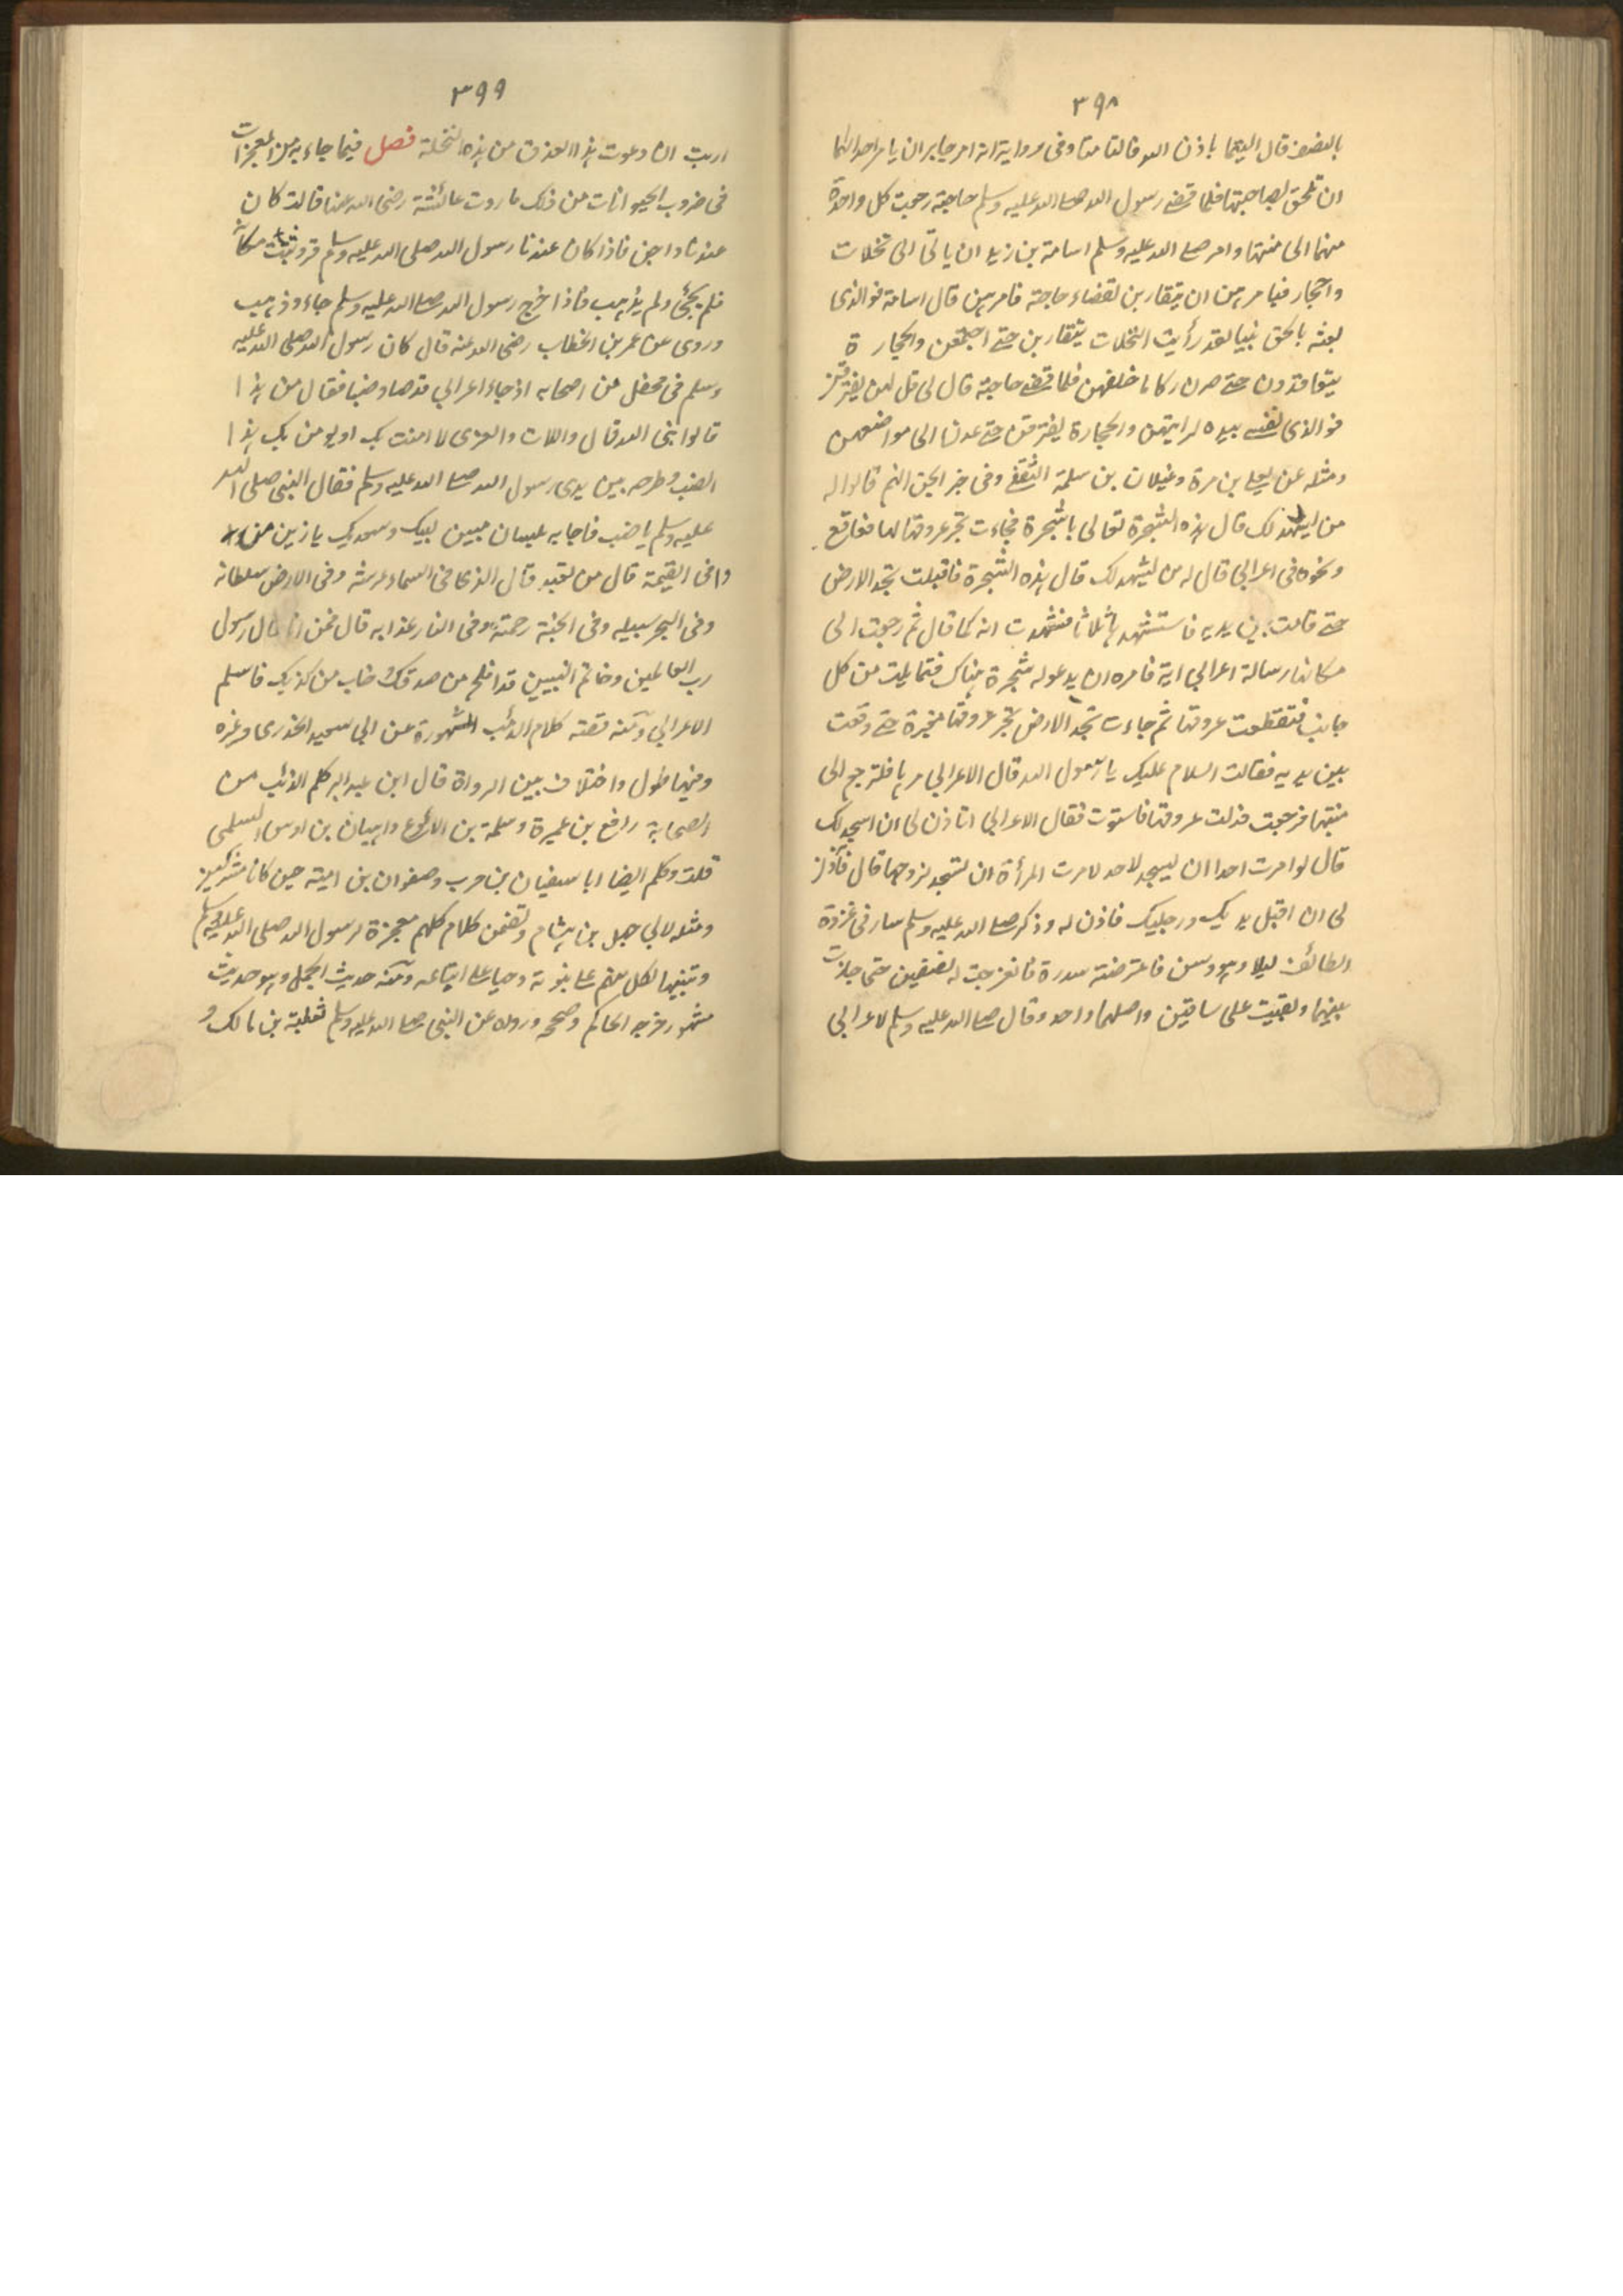 ٣٩٨
بالنصف قال التيما باذن الله فالتامتا وفى رواية انه امر جابر ان يامر احداهما
ان تلحق بصاحبتها فلما قضى رسول الله صلى الله عليه وسلم حاجته رجعت كل واحدة
منهما الى منبتها وامر صلى الله عليه وسلم اسامة بن زيد ان ياتى الى نخلات
واحجار فيامرهن ان يتقاربن لقضاء حاجته فامرهن قال اسامة فو الذى
بعثه بالحق نبيا لقد رأيت النخلات يتقاربن حتى اجتمعن والحجارة
يتعاقدون حتى صرن ركاما خلفهن فلما قضى حاجته قال لى قل لهن يفترقن
فو الذى نفسى بيده لرايتهن والحجارة يفترقن حتى عدنا الى مواضعهن
ومثله عن يعلى بن مرة وغيلان بن سلمة الثقفى وفى خبر الجن انهم قالوا له
من يشهد لك قال هذه الشجرة تعالى يا شجرة فجاءت تجر عروقها لها قعاقع
ونحوه فى اعرابى قال له من يشهد لك قال هذه الشجرة فاقبلت تخد الارض
حتى قامت بين يديه فاستشهدها ثلاثا فشهدت انه كما قال ثم رجعت الى
مكانها رسالة اعرابى اية فامره ان يدعو له شجرة هناك فتمايلت من كل
جانب فتقطعت عروقها ثم جاءت تخد الارض تجر عروقها مغبرة حتى وقعت
بين يديه فقالت السلام عليك يا رسول الله قال الاعرابى مرها فلترجع الى
منبتها فرجعت فدلت عروقها فاستوت فقال الاعرابى اتاذن لى ان اسجد لك
قال لو امرت احدا ان يسجد لاحد لامرت المرأة ان تسجد لزوجها قال فأذن
لى ان اقبل يديك ورجليك فاذن له وذكر صلى الله عليه وسلم سار فى غزوة
الطائف ليلا وهو وسن فاعترضته سدرة فانفرجت له نصفين حتى جازت
بينهما وبقيت على ساقين واصلهما واحد وقال صلى الله عليه وسلم لاعرابى
٣٩٩
اريت ان دعوت هذا العذق من هذه النخلة فصل فيما جاء به من المعجزات
فى ضروب الحيوانات من ذلك ما روت عائشة رضى الله عنها قالت كان
عندنا داجن فاذا كان عندنا رسول الله صلى الله عليه وسلم قر وثبت مكانه
فلم يجئ ولم يذهب فاذا خرج رسول الله صلى الله عليه وسلم جاء وذهب
وروى عن عمر بن الخطاب رضى الله عنه قال كان رسول الله صلى الله عليه
وسلم فى محفل من اصحابه اذ جاء اعرابى قد صاد ضبا فقال من هذا
قالوا نبى الله قال واللات والعزى لا امنت بك او يومن بك هذا
الضب وطرحه بين يدى رسول الله صلى الله عليه وسلم فقال النبى صلى الله
عليه وسلم يا ضب فاجابه بلسان مبين لبيك وسعديك يا زين من
وافى القيمة قال من تعبد قال الذى فى السماء عرشه وفى الارض سلطانه
وفى البحر سبيله وفى الجنة رحمته وفى النار عذابه قال فمن انا قال رسول
رب العالمين وخاتم النبيين قد افلح من صدقك وخاب من كذبك فاسلم
الاعرابى ومنه قصته كلام الذئب المشهورة عن ابى سعيد الخدرى وغيره
وفيها طول واختلاف بين الرواة قال ابن عبد البر كلم الذئب من
الصحابة رافع بن عميرة وسلمة بن الاكوع واهبان بن اوس السلمى
قلت وكلم ايضا ابا سفيان بن حرب وصفوان بن امية حين كانا مشركين
ومثله لابى جهل بن هشام وتضمن كلام كلهم معجزة لرسول الله صلى الله عليه وسلم
وتنبيها لكل منهم على نبوته وحيا على اتباعه ومنه حديث الجمل وهو حديث
مشهور خرجه الحاكم وصححه ورواه عن النبى صلى الله عليه وسلم ثعلبة بن مالك و